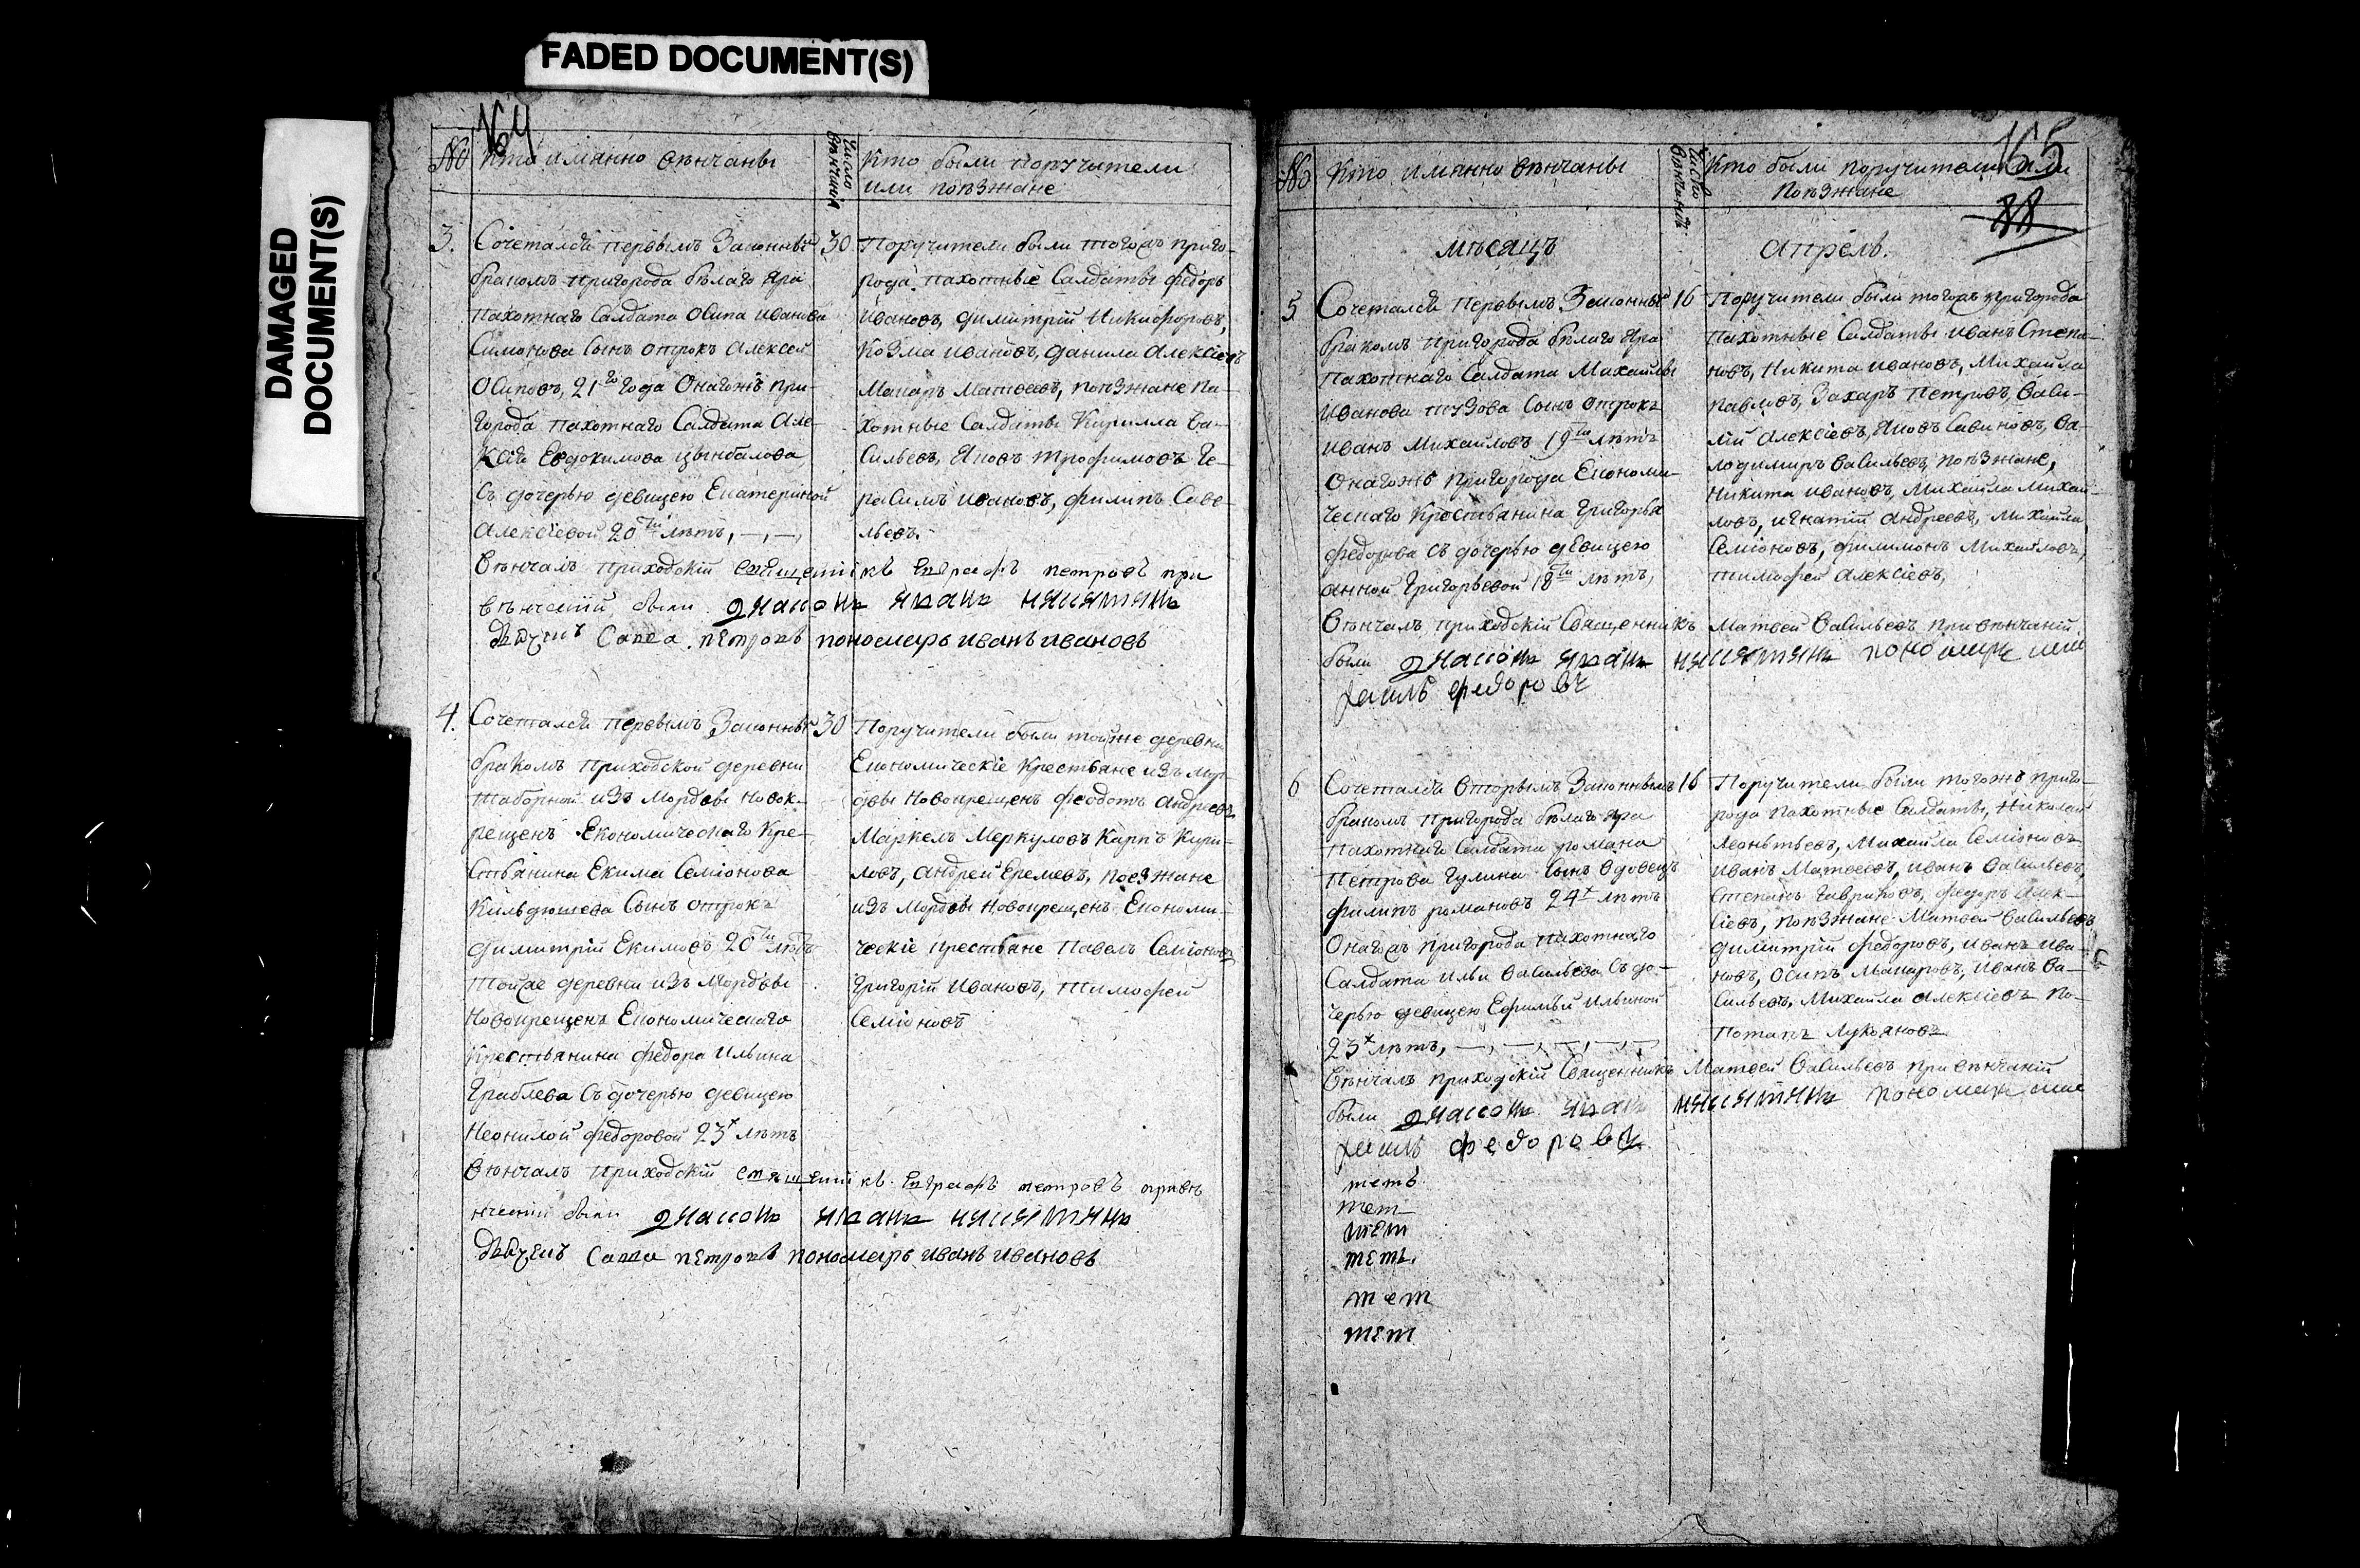 FADED DOCUMENT(S)
DAMAGED
DOCUMENT(S)
164
№ Кто имянно венчаны
Число венчаний
Кто были поручители
или поезжане
3. Сочетался первымъ Законны 30
бракомъ пригорода белаго Яра
пахотнаго Салдата Осипа Иванова
Симонова Сынъ отрокъ Алексей
Осиповъ, 21го года Онагожъ при-
города пахотнаго Салдата Але-
ксея Евдокимова Цынбалова
Съ дочерью девицею Екатериной
Алексіевой 20ти летъ, —, —,
Поручители были тогожъ приго-
рода пахотные Салдаты Федоръ
Ивановъ, Димитрій Никифоровъ,
Козма Ивановъ, Данила Алексіевъ
Макаръ Матвеевъ, поезжане Па-
хотные Салдаты Кирилла Ва-
сильевъ, Яковъ Трофимовъ Ге-
расимъ Ивановъ, Филипъ Саве-
льевъ.
Венчалъ приходскій священникъ Евграфъ Петровъ при
венчаній были діаконъ Иванъ
Савва Петровъ пономарь Иванъ Ивановъ
4. Сочетался первымъ Законны 30
бракомъ приходской деревни
Таборной изъ Мордвы Новок-
рещенъ Економическаго Кре-
стьянина Екима Семіонова
Кильдюшева Сынъ отрокъ
Димитрій Екимовъ 20ти летъ
Тойже деревни изъ Мордвы
Новокрещенъ Економическаго
Крестьянина Федора Ильина
Граблева Съ дочерью девицею
Неонилой Федоровой 23х летъ
Поручители были тойже деревни
Економическіе Крестьяне изъ Мор-
двы Новокрещенъ Феодотъ Андреевъ
Маркелъ Меркуловъ Карпъ Кури-
ловъ, Андрей Еремеевъ, поезжане
изъ Мордвы Новокрещенъ Економи-
ческіе крестьяне Павелъ Семіоновъ
Григорій Ивановъ, Тимофей
Семіоновъ
Венчалъ приходскій священникъ Евграфъ Петровъ при ве
нчаній были діаконъ Иванъ
Савва Петровъ пономарь Иванъ Ивановъ
165
88
№ Кто имянно венчаны
Число венчаній
Кто были поручители или
Поезжане
месяцъ Апрель.
5 Сочетался первымъ Законны 16
бракомъ пригорода белаго Яра
пахотнаго Салдата Михайлы
Иванова Пузова Сынъ отрокъ
Иванъ Михайловъ 19ти летъ
Онагожъ пригорода Економи-
ческаго Крестьянина Григорья
Федорова съ дочерью девицею
Анной Григорьевой 18ти летъ,
Поручители были тогожъ пригорода
Пахотные Салдаты Иванъ Степа-
новъ, Никита Ивановъ, Михайла
Павловъ, Захаръ Петровъ, Васи-
лій Алексіевъ, Яковъ Савиновъ, Во-
лодимиръ Васильевъ, поезжане,
Никита Ивановъ, Михайла Михай-
ловъ, Игнатій Андреевъ, Михайла
Семіоновъ, Филимонъ Михайловъ,
Тимофей Алексіевъ,
Венчалъ приходскій Священникъ Матвей Васильевъ при венчаній
были діаконъ Иванъ пономарь ми
хаилъ федоровъ
6 Сочетался вторымъ Законнымъ 16
бракомъ пригорода белаго Яра
Пахотнаго Салдата Романа
Петрова Гулина Сынъ вдовецъ
Филипъ Романовъ 24х летъ
Онагожъ пригорода пахотнаго
Салдата Ильи Васильева Съ до-
черью девицею Ефимьей Ильиной
23х летъ, —, —, —, —, —
Поручители были тогожъ приго-
рода пахотные Салдаты, Николай
Леонтьевъ, Михайла Семіоновъ
Иванъ Матвеевъ, Иванъ Васильевъ,
Степанъ Гавриловъ, Федоръ Алек-
сіевъ, поезжане Матвей Васильевъ,
Димитрій Федоровъ, Иванъ Ива-
новъ, Осипъ Макаровъ, Иванъ Ва-
сильевъ, Михайла Алексіевъ По-
Потапъ Лукояновъ
Венчалъ приходскій Священникъ Матвей Васильевъ при венчаній
были діаконъ Иванъ пономарь ми
хаилъ федоровъ